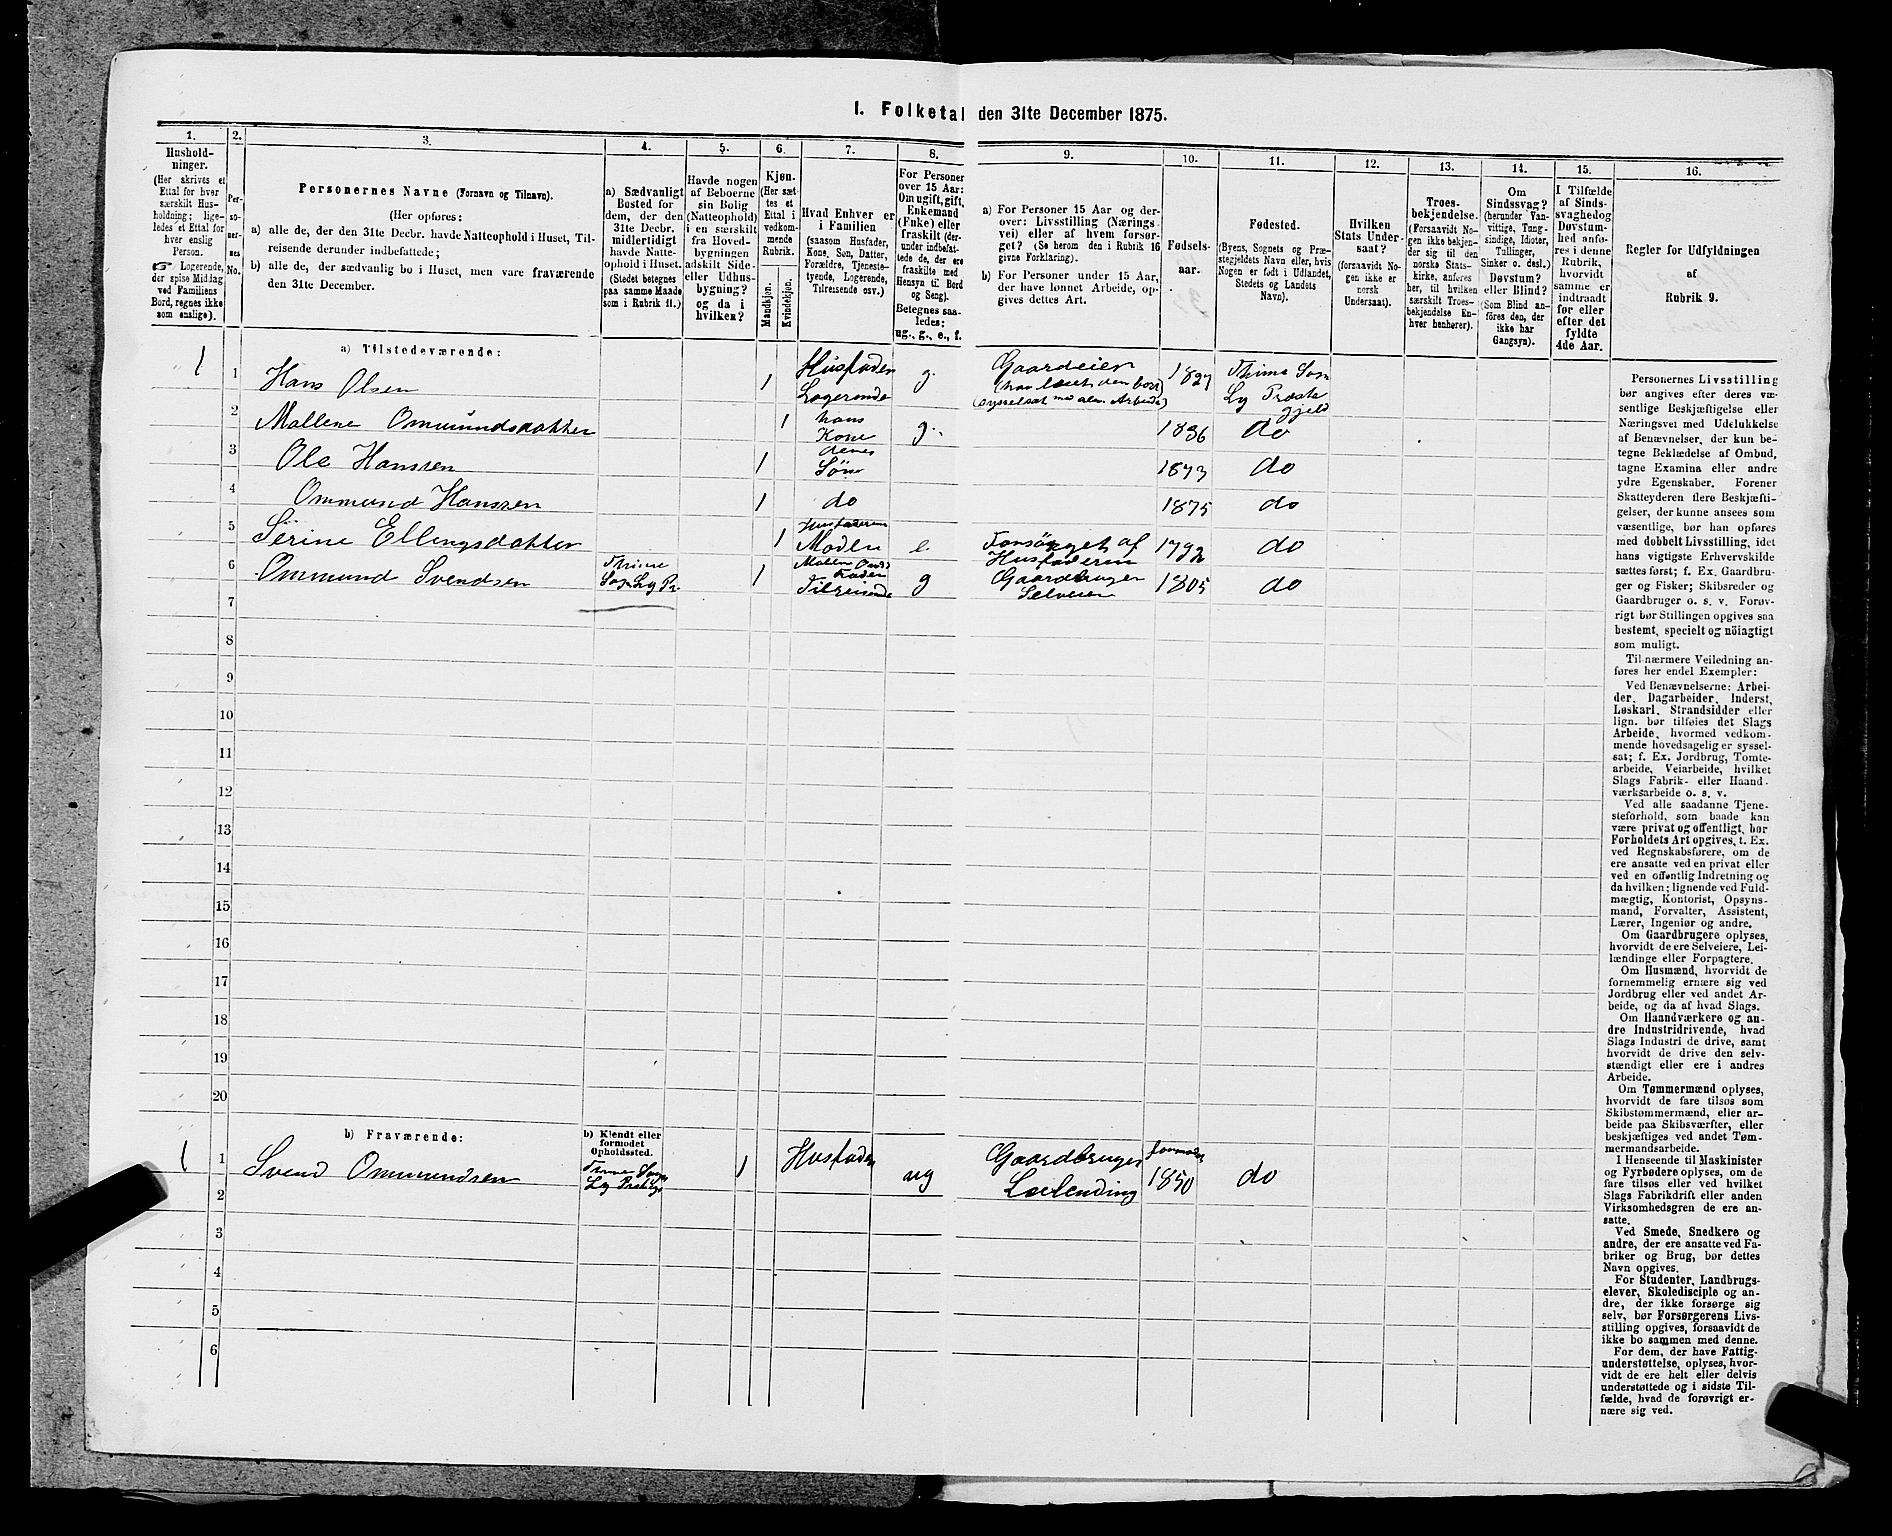 I. Folketal den 31te December 1875.
1.
Hushold-
ninger.
(Her skrives et
Ettal for hver
særskilt Hus-
holdning; lige-
ledes et Ettal for
hver enslig
Person.
☞ Logerende,
der spise Middag
ved Familiens
Bord, regnes ikke
som enslige).
2.
Per-
so-
ner-
nes
No.
3.
Personernes Navne (Fornavn og Tilnavn).
(Her opføres:
a) alle de, der den 31te Decbr. havde Natteophold i Huset, Til-
reisende derunder indbefattede;
b) alle de, der sædvanlig bo i Huset, men vare fraværende
den 31te December.
4.
a) Sædvanligt
Bosted for
dem, der den
31te Decbr.
midlertidigt
havde Natte-
ophold i Huset.
(Stedet betegnes
paa samme Maade
som i Rubrik 11.)
5.
Havde nogen
af Beboerne
sin Bolig
(Natteophold)
i en særskilt
fra Hoved-
bygningen
adskilt Side-
eller Udhus-
bygning?
og da i
hvilken?
6.
Kjøn.
(Her sæt-
tes et
Ettal i
vedkom-
mende
Rubrik.
Mandkjøn.
Kvindekjøn.
7.
Hvad Enhver er
i Familien
(saasom Husfader,
Kone, Søn, Datter,
Forældre, Tjeneste-
tyende, Logerende,
Tilreisende osv.)
8.
For Personer
over 15 Aar:
Om ugift, gift,
Enkemand
(Enke) eller
fraskilt (der-
under indbefat-
tede de, der ere
fraskilte med
Hensyn til Bord
og Seng).
Betegnes saa-
ledes:
ug., g., e., f.
9.
a) For Personer 15 Aar og der-
over: Livsstilling (Nærings-
vei) eller af hvem forsør-
get? (Se herom den i Rubrik 16
givne Forklaring).
b) For Personer under 15 Aar,
der have lønnet Arbeide, op-
gives dettes Art.
10.
Fødsels-
aar.
11.
Fødested.
(Byens, Sognets og Præ-
stegjeldets Navn eller, hvis
Nogen er født i Udlandet,
Stedets og Landets
Navn).
12.
Hvilken
Stats Under-
saat?
(forsaavidt No-
gen ikke er
norsk
Undersaat).
13.
Troes-
bekjendelse.
(Forsaavidt No-
gen ikke bekjen-
der sig til den
norske Stats-
kirke, anføres
her, til hvilken
særskilt Troes-
bekjendelse En-
hver henhører).
14.
Om
Sindssvag?
(herunder Van-
vittige, Tung-
sindige, Idioter,
Tullinger,
Sinker o. desl.)
Døvstum?
eller Blind?
(Som Blind an-
føres den, der
ikke har
Gangsyn).
15.
I Tilfælde
af Sinds-
svaghed og
Døvstum-
hed anfø-
res i denne
Rubrik,
hvorvidt
samme er
indtraadt
før eller
efter det
fyldte
4de Aar.
16.
Regler for Udfyldningen
af
Rubrik 9.
a) Tilstedeværende:
1 1 Hans Olsen 1 Husfader Logerende g. Gaardeier (har leiet den bort sysselsat med alm. Arbeide) 1827 Thime Sogn Ly Præstegjeld
2 Mallene Ommundsdatter 1 hans Kone g. 1836 do
3 Ole Hanssen 1 deres Søn 1873 do
4 Ommund Hanssen 1 do 1875 do
5 Serine Ellingsdatter 1 Husfaderen Moder e. Forsørget af Husfaderen 1792 do
6 Ommund Svendsen Thime Sogn Ly Pr. 1 Fader Tilreisende g Gaardbruger Selveier 1805 do
7
8
9
10
11
12
13
14
15
16
17
18
19
20
b) Fraværende:
b) Kjendt eller
formodet
Opholdssted.
1 1 Svend Ommundsen Thime Sogn Ly Prstgj 1 Husfader ug Gaardbruger Leilending formodet 1850 do
2
3
4
5
6
Personernes Livsstilling
bør angives efter deres væ-
sentlige Beskjæftigelse eller
Næringsvei med Udelukkelse
af Benævnelser, der kun be-
tegne Beklædelse af Ombud,
tagne Examina eller andre
ydre Egenskaber. Forener
Skatteyderen flere Beskjæfti-
gelser, der kunne ansees som
væsentlige, bør han opføres
med dobbelt Livsstilling, idet
hans vigtigste Erhvervskilde
sættes først; f. Ex. Gaardbru-
ger og Fisker; Skibsreder og
Gaardbruger o. s. v. Forøv-
rigt bør Stillingen opgives saa
bestemt, specielt og nøiagtigt
som muligt.
Til nærmere Veiledning an-
føres her endel Exempler:
Ved Benævnelserne: Arbei-
der, Dagarbeider, Inderst,
Løskarl, Strandsidder eller
lign. bør tilføies det Slags
Arbeide, hvormed vedkom-
mende hovedsagelig er syssel-
sat; f. Ex. Jordbrug, Tomte-
arbeide, Veiarbeide, hvilket
Slags Fabrik- eller Haand-
værksarbeide o. s. v.
Ved alle saadanne Tjene-
steforhold, som baade kan
være privat og offentligt, bør
Forholdets Art opgives, t. Ex.
ved Regnskabsførere, om de
ere ansatte ved en privat eller
ved en offentlig Indretning og
da hvilken; lignende ved Fuld-
mægtig, Kontorist, Opsyns-
mand, Forvalter, Assistent,
Lærer, Ingeniør og andre.
Om Gaardbrugere oplyses,
hvorvidt de ere Selveiere, Lei-
lændinge eller Forpagtere.
Om Husmænd, hvorvidt de
fornemmelig ernære sig ved
Jordbrug eller ved andet Ar-
beide, og da af hvad Slags.
Om Haandværkere og an-
dre Industridrivende, hvad
Slags Industri de drive, samt
hvorvidt de drive den selv-
stændigt eller ere i andres
Arbeide.
Om Tømmermænd oplyses,
hvorvidt de fare tilsøs som
Skibstømmermænd, eller ar-
beide paa Skibsværfter, eller
beskjæftiges ved andet Tøm-
mermandsarbeide.
I Henseende til Maskinister
og Fyrbødere oplyses, om de
fare tilsøs eller ved hvilket
Slags Fabrikdrift eller anden
Virksomhedsgren de ere an-
satte.
Ved Smede, Snedkere og
andre, der ere ansatte ved Fa-
briker og Brug, bør dettes
Navn opgives.
For Studenter, Landbrugs-
elever, Skoledisciple og an-
dre, der ikke forsørge sig
selv, bør Forsørgerens Livs-
stilling opgives, forsaavidt de
ikke bo sammen med denne.
For dem, der have Fattig-
understøttelse, oplyses, hvor-
vidt de ere helt eller delvis
understøttede og i sidste Til-
fælde, hvad de forøvrigt er-
nære sig ved.